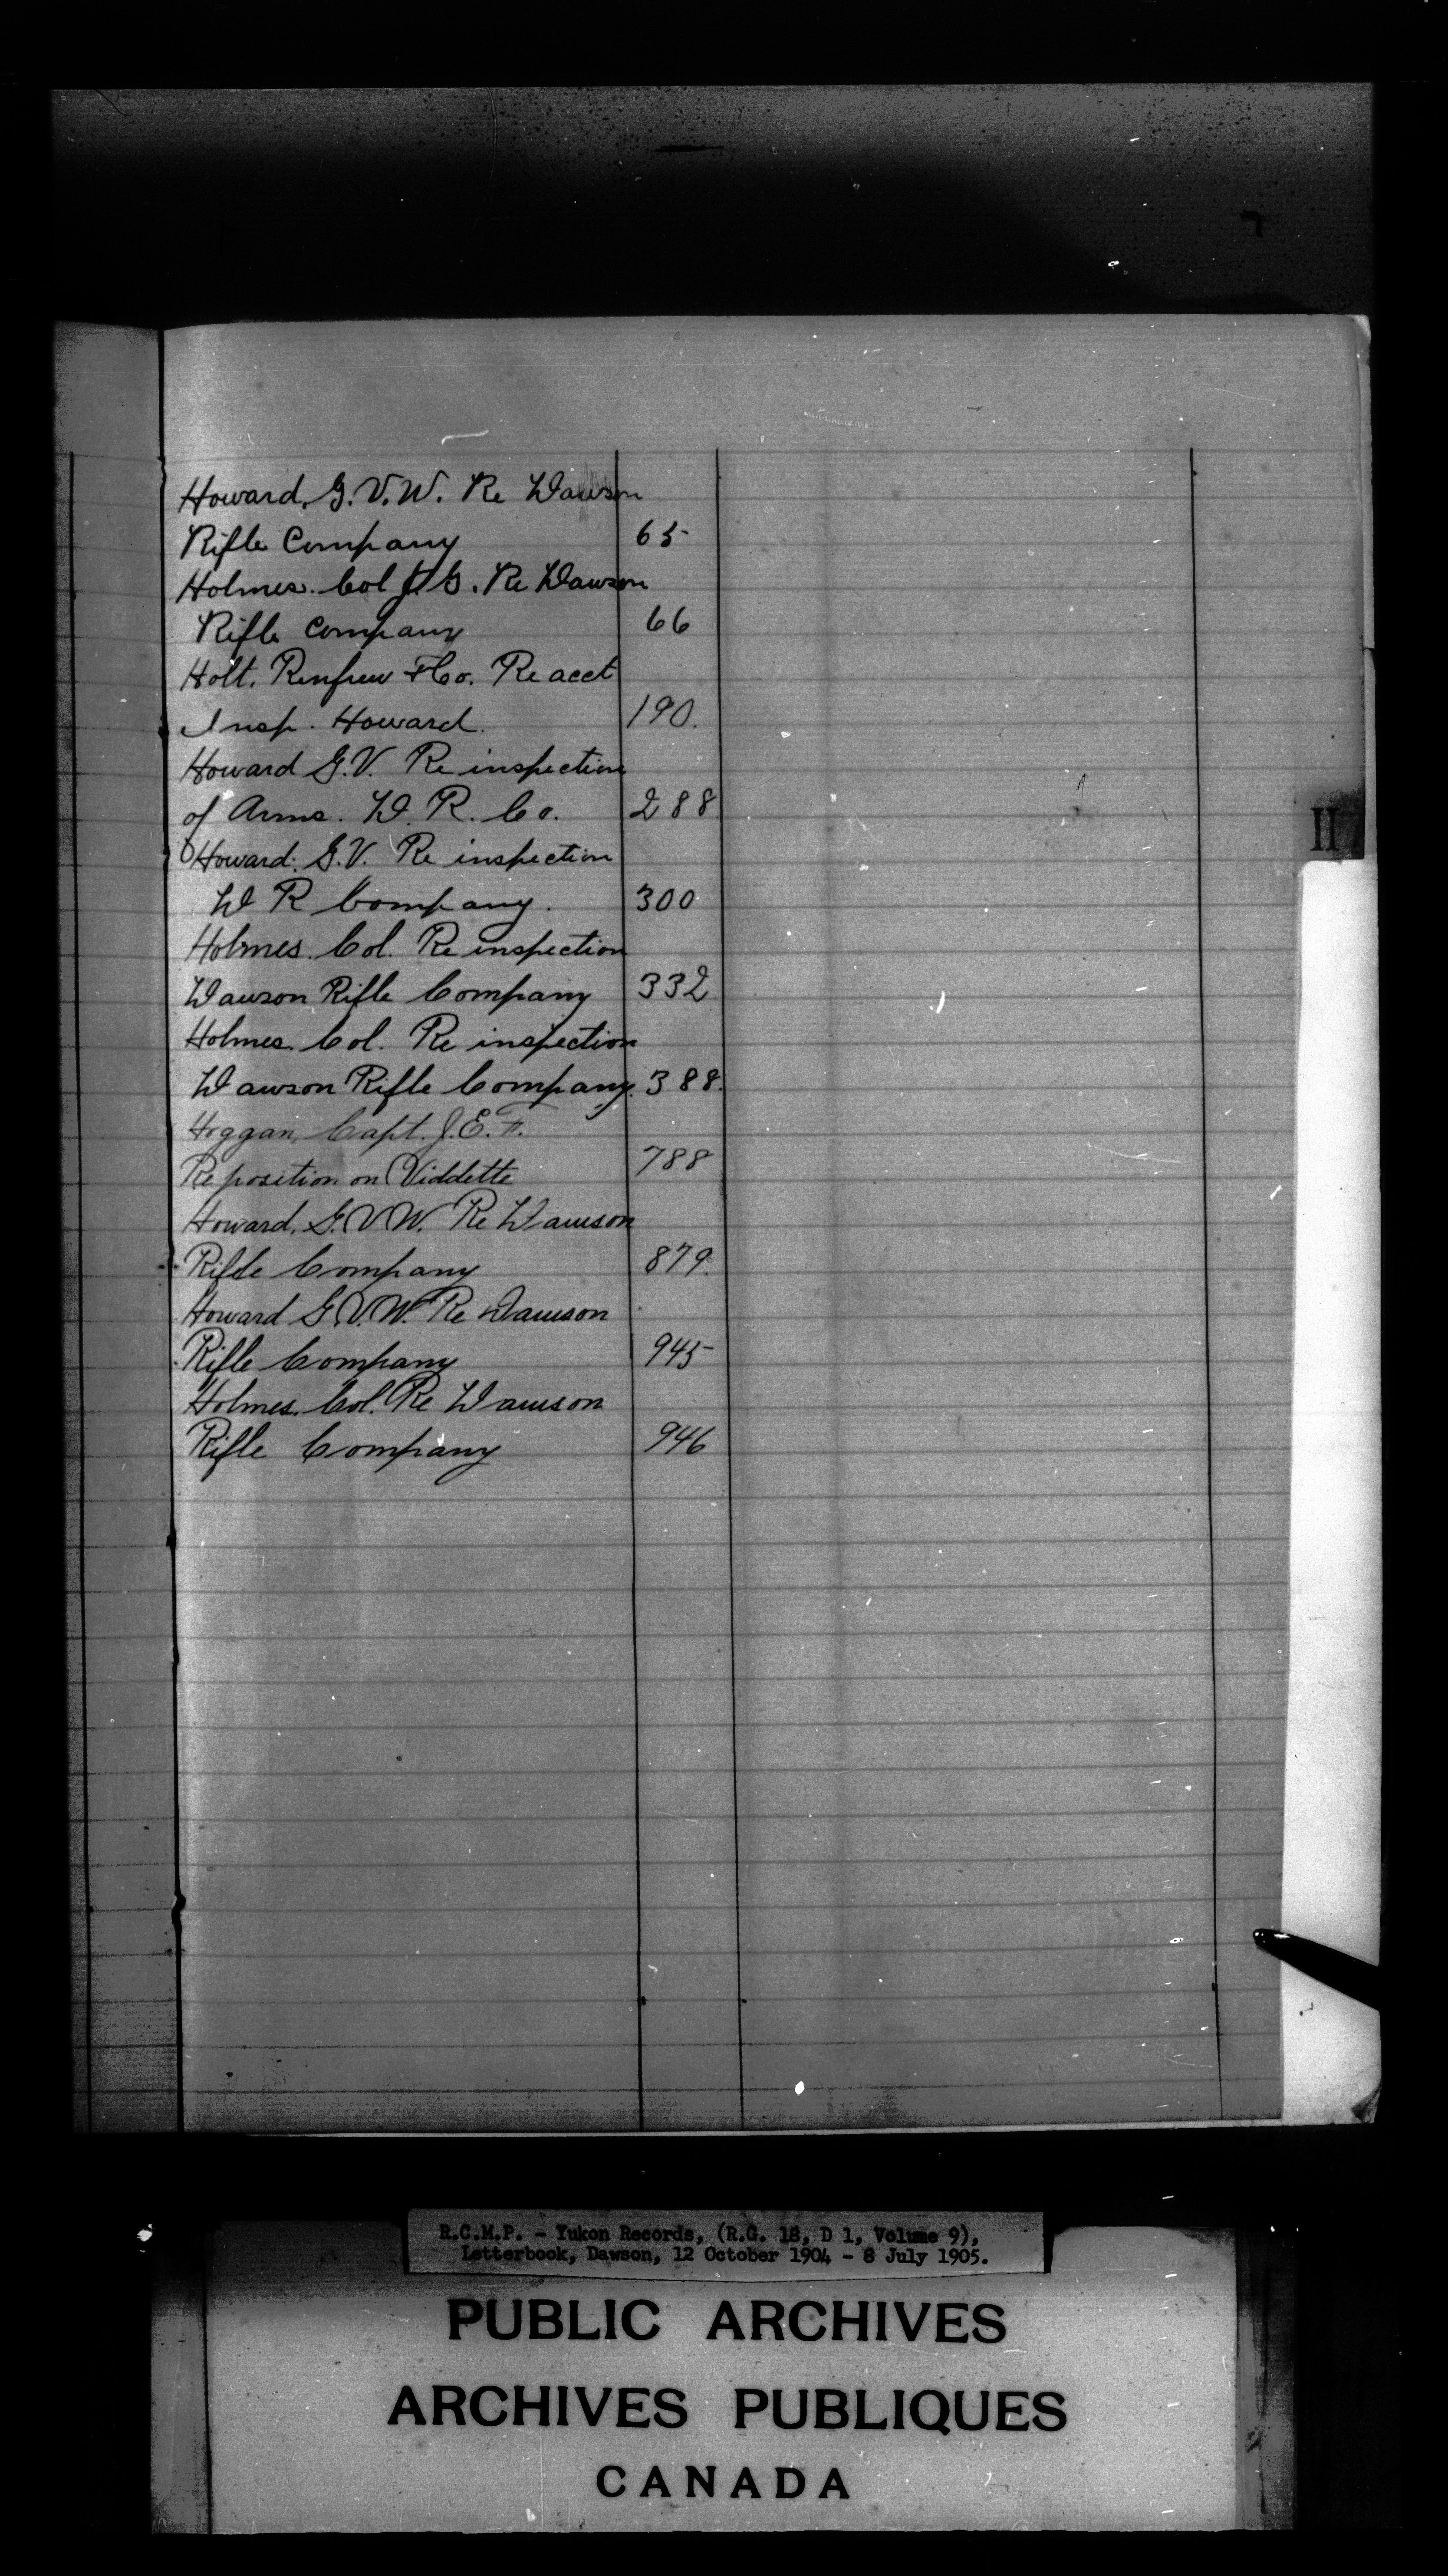 Howard, G. V. W. Re Dawson
Rifle Company 65
Holmes. Col J. G. Re Dawson
Rifle Company 66
Holt. Renfrew & Co. Re acct
Insp. Howard. 190.
Howard G. V. Re inspection
of Arms. D. R. Co. 288
Howard. G. V. Re inspection
D R Company. 300
Holmes. Col. Re inspection
Dawson Rifle Company 332
Holmes. Col. Re inspection
Dawson Rifle Company. 388.
Hoggan, Capt. J. E. F.
Re position on Viddette 788
Howard, G. V W. Re Dawson
Rifle Company 879.
Howard G. V. W. Re Dawson
Rifle Company 945
Holmes. Col. Re Dawson
Rifle Company 946
R.C.M.P. - Yukon Records, (R.G. 18, D 1, Volume 9),
Letterbook, Dawson, 12 October 1904 - 8 July 1905.
PUBLIC ARCHIVES
ARCHIVES PUBLIQUES
CANADA